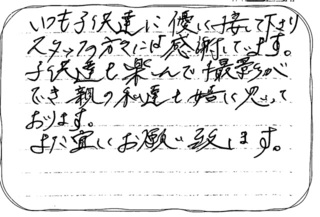 いつも子供達に優しく接して下さり
スタッフの方々には感謝しています。
子供達も楽しんで撮影が
でき親の私達も嬉しく思って
おります。
また宜しくお願い致します。